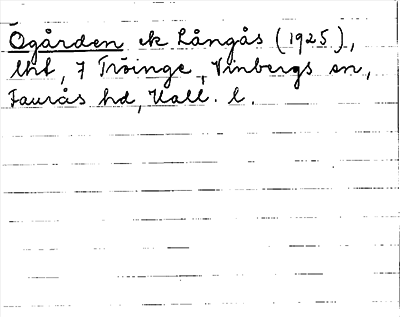 Ögården ek Långås (1925),
lht, 7 Tröinge, Vinbergs sn,
Faurås hd, Hall. l.